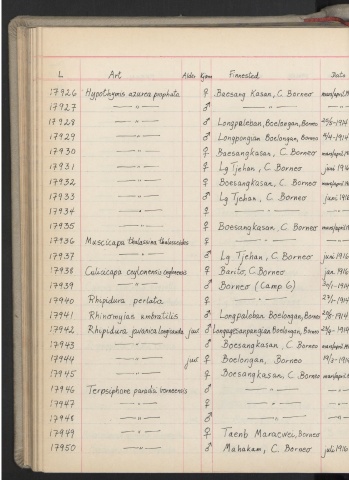 L Art Alder Kjønn Finnested Dato
17926 Hypothymis azurea prophata ♀ Boesang Kasan, C. Borneo mars/april 19
17927 —"— ♂ —"—
17928 —"— ♂ Longpaleban, Boelongan, Borneo 1914
17929 —"— ♂ Longpongian Boelongan, Borneo 1914
17930 —"— ♀ Boesangkasan, C. Borneo mars/april 19
17931 —"— ♀ Lg Tjehan, C. Borneo juni 1916
17932 —"— ♀ Boesangkasan, C. Borneo mars/april 19
17933 —"— ♂ Lg Tjehan, C. Borneo juni 1916
17934 —"— ♀ —"—
17935 —"— ♀ Boesangkasan, C. Borneo mars/april 19
17936 Muscicapa thalassina thalassoides ♀ —"—
17937 —"— ♂ Lg Tjehan, C. Borneo juni 1916
17938 Culicicapa ceylonensis ceylonensis ♀ Barito, C. Borneo jan. 1916
17939 —"— ♂ Borneo (Camp 6) 1914
17940 Rhipidura perlata ♀ —"— 1914
17941 Rhinomyias umbratilis ♂ Longpaleban Boelongan, Borneo 1914
17942 Rhipidura javanica longicauda juv ♂ Boelongan, Borneo 1914
17943 —"— ♂ Boesangkasan, C. Borneo mars/april 19
17944 —"— juv ♀ Boelongan, Borneo 1914
17945 —"— ♀ Boesangkasan, C. Borneo mars/april 19
17946 Terpsiphone paradisi borneensis ♂ —"—
17947 —"— ♀ —"—
17948 —"— ♂ —"—
17949 —"— ♀ Borneo
17950 —"— ♂ Mahakam, C. Borneo juli 1916